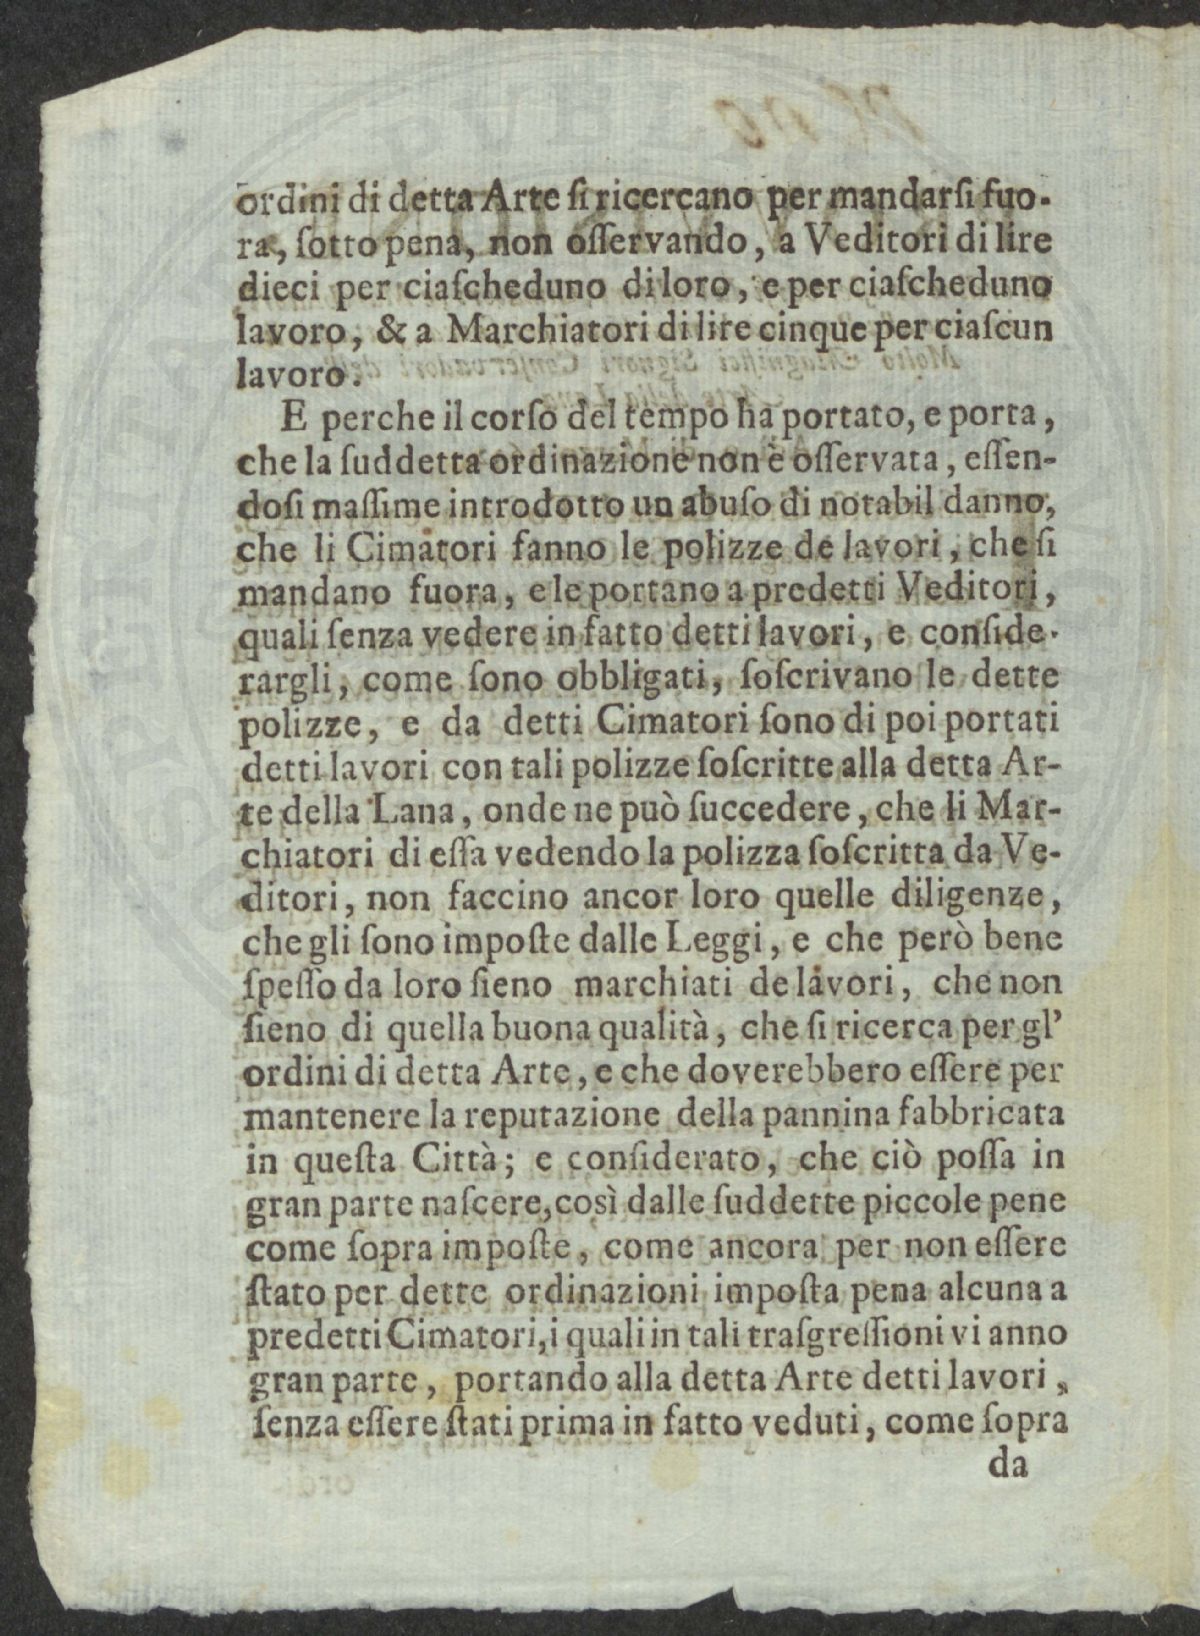 ordini di detta Arte ſi ricercano per mandarſi fuo-
ra, ſotto pena, non oſſervando, a Veditori di lire
dieci per ciaſcheduno di loro, e per ciaſcheduno
lavoro, & a Marchiatori di lire cinque per ciaſcun
lavoro.
E perche il corſo del tempo ha portato, e porta,
che la ſuddetta ordinazione non è oſſervata, eſſen-
doſi maſſime introdotto un abuſo di notabil danno,
che li Cimatori fanno le polizze de lavori, che ſi
mandano fuora, e le portano a predetti Veditori,
quali ſenza vedere in fatto detti lavori, e conſide-
rargli, come ſono obbligati, ſoſcrivano le dette
polizze, e da detti Cimatori ſono di poi portati
detti lavori con tali polizze ſoſcritte alla detta Ar-
te della Lana, onde ne può ſuccedere, che li Mar-
chiatori di eſſa vedendo la polizza ſoſcritta da Ve-
ditori, non faccino ancor loro quelle diligenze,
che gli ſono impoſte dalle Leggi, e che però bene
ſpeſſo da loro ſieno marchiati de lavori, che non
ſieno di quella buona qualità, che ſi ricerca per gl'
ordini di detta Arte, e che doverebbero eſſere per
mantenere la reputazione della pannina fabbricata
in queſta Città; e conſiderato, che ciò poſſa in
gran parte naſcere, così dalle ſuddette piccole pene
come ſopra impoſte, come ancora per non eſſere
ſtato per dette ordinazioni impoſta pena alcuna a
predetti Cimatori, i quali in tali traſgreſſioni vi anno
gran parte, portando alla detta Arte detti lavori,
ſenza eſſere ſtati prima in fatto veduti, come ſopra
da